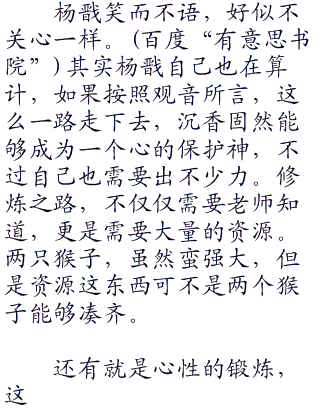 杨戬笑而不语，好似不
关心一样。(百度“有意思书
院”)其实杨戬自己也在算
计，如果按照观音所言，这
么一路走下去，沉香固然能
够成为一个心的保护神，不
过自己也需要出不少力。修
炼之路，不仅仅需要老师知
道，更是需要大量的资源。
两只猴子，虽然蛮强大，但
是资源这东西可不是两个猴
子能够凑齐。
还有就是心性的锻炼，
这